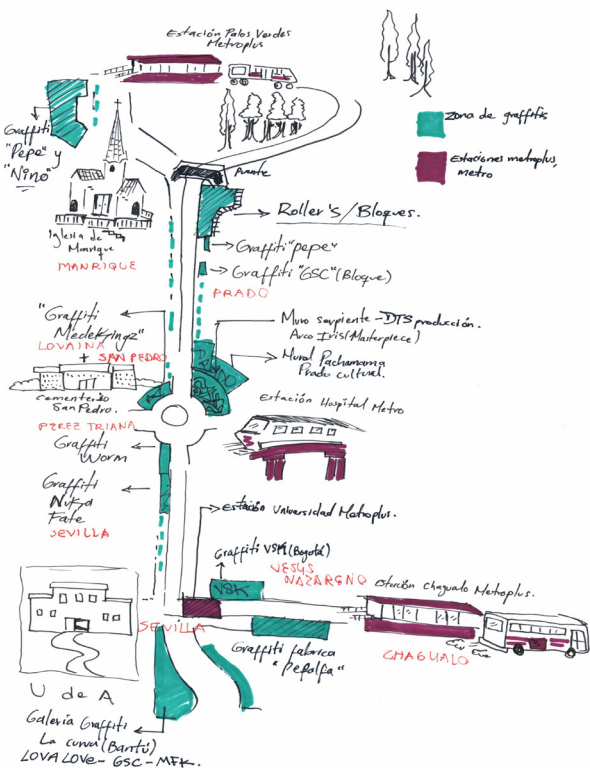 Estación Palos Verdes
Metroplus
zona de graffitis
Estaciones metroplus,
metro
Graffiti
"Pepe" y
"Nino"
Puente
Roller's/Bloques.
Iglesia de
Manrique
MANRIQUE
Graffiti "pepe"
Graffiti "GSC" (Bloque)
PRADO
"Graffiti
Medekingz"
LOVAINA
+ SAN PEDRO
Muro serpiente - DTS producción.
Arco Iris (Masterpiece)
Mural Pachamama
Prado cultural.
cementerio
San Pedro.
Estación Hospital Metro
PEREZ TRIANA
Graffiti
Worm
Graffiti
Nuka
Fate
SEVILLA
Estación Universidad Metroplus.
Graffiti VSK (Bogotá)
JESUS
NAZARENO
VSK
Estación Chagualo Metroplus.
SEVILLA
Graffiti fabrica
"Pepalfa"
CHAGUALO
U de A
Galeria Graffiti
La curva (Bantú)
LOVALOVE - GSC - MFK.